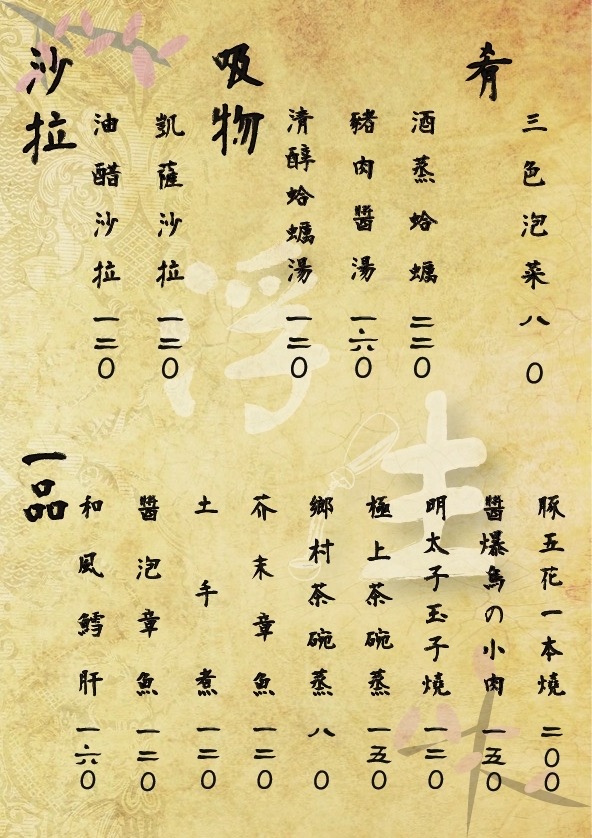 肴
三色泡菜 八0
酒蒸蛤蠣 二二0
豬肉醬湯 一六0
清醇蛤蠣湯 一二0
吸物
凱薩沙拉 一二0
油醋沙拉 一二0
沙拉
豚五花一本燒 二00
醬爆鳥の小肉 一五0
明太子玉子燒 一二0
極上茶碗蒸 一五0
鄉村茶碗蒸 八0
芥末章魚 一二0
土手煮 一二0
醬泡章魚 一二0
和風鱈肝 一六0
一品
浮生